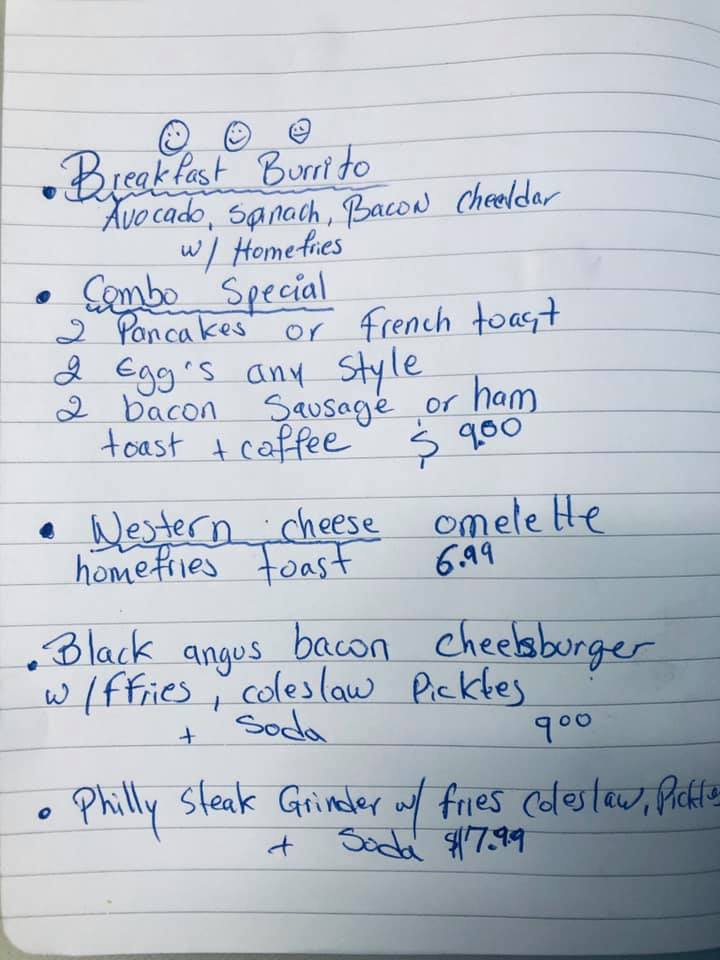 • Breakfast Burrito
Avocado, Spnach, Bacon Cheeldar
w/ Homefries
• Combo Special
2 Pancakes or French toast
2 Egg's any Style
2 bacon Sausage or ham
toast + coffee $ 9.00
• Western cheese omelette
homefries toast 6.99
• Black angus bacon cheeseburger
w/ ffries, coleslaw Pickles
+ Soda 9 00
• Philly Steak Grinder w/ fries Coleslaw, Pickle
+ Soda